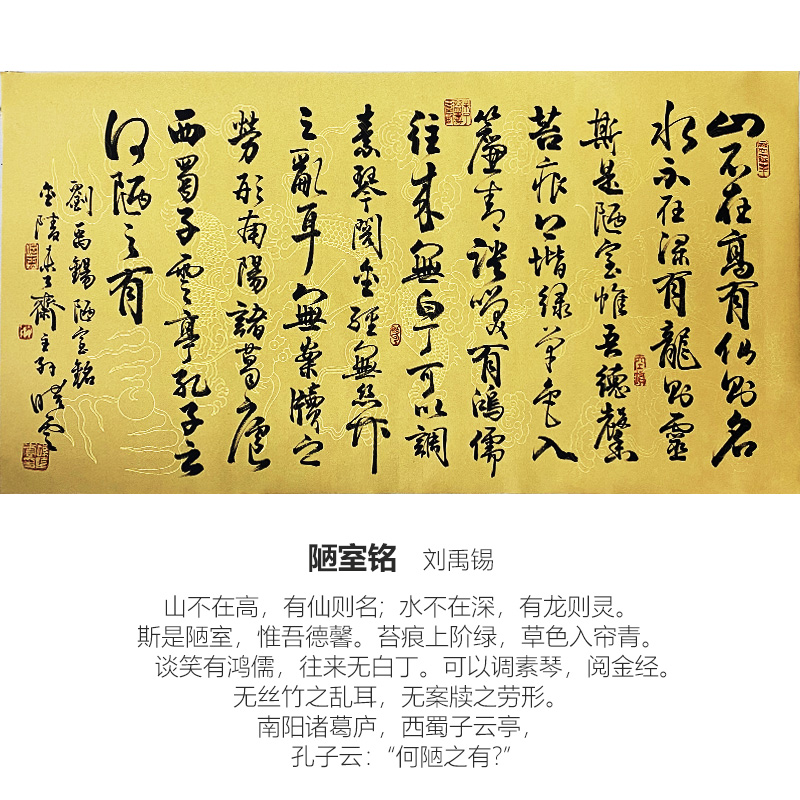 山不在高有仙則名
水不在深有龍則靈
斯是陋室惟吾德馨
苔痕上堦緑草色入
簾青談笑有鴻儒
往来無白丁可以調
素琴閱金經無絲竹
之亂耳無案牘之
勞形南陽諸葛廬
西蜀子雲亭孔子云
何陋之有
劉禹錫陋室銘
金陵
陋室铭 刘禹锡
山不在高，有仙则名；水不在深，有龙则灵。
斯是陋室，惟吾德馨。苔痕上阶绿，草色入帘青。
谈笑有鸿儒，往来无白丁。可以调素琴，阅金经。
无丝竹之乱耳，无案牍之劳形。
南阳诸葛庐，西蜀子云亭，
孔子云：“何陋之有?”